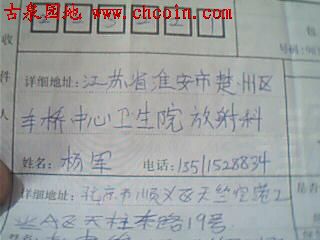 古泉园地
www.chcoin.com
收
件
人
详细地址:江苏省淮安市楚州区
车桥中心卫生院放射科
姓名:杨军 电话:13511528834
详细地址:北京市顺义区天竺空港工
业A区天柱东路19号